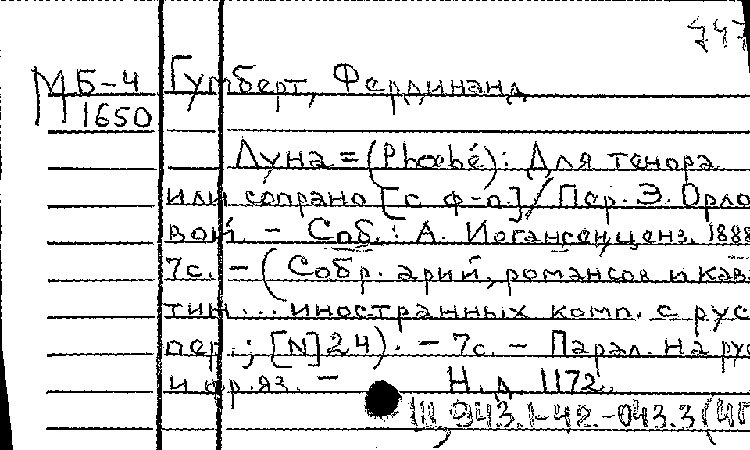 747
МБ-4 Гумберт, Фердинанд
1650
Луна = (Phoebé): Для тенора
или сопрано [с ф-п] / Пер. Э. Орло
вой. - Спб.: А. Иогансен, ценз. 1888
7с. - (Собр. арий, романсов и кава
тин ... иностранных комп. с рус
пер.; [N] 24). - 7с. - Парал. на рус
и фр. яз. - Н. д. 1172.
Ш 943.1-42.-043.3(4Г